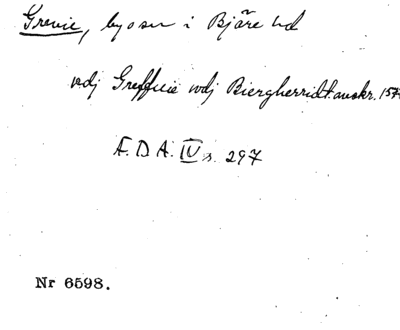 Grevie, by o sn i Bjäre hd
vdj Greffuie wdj Biergherridt. avskr. 157
F. D. A. IV s. 297
Nr 6598.